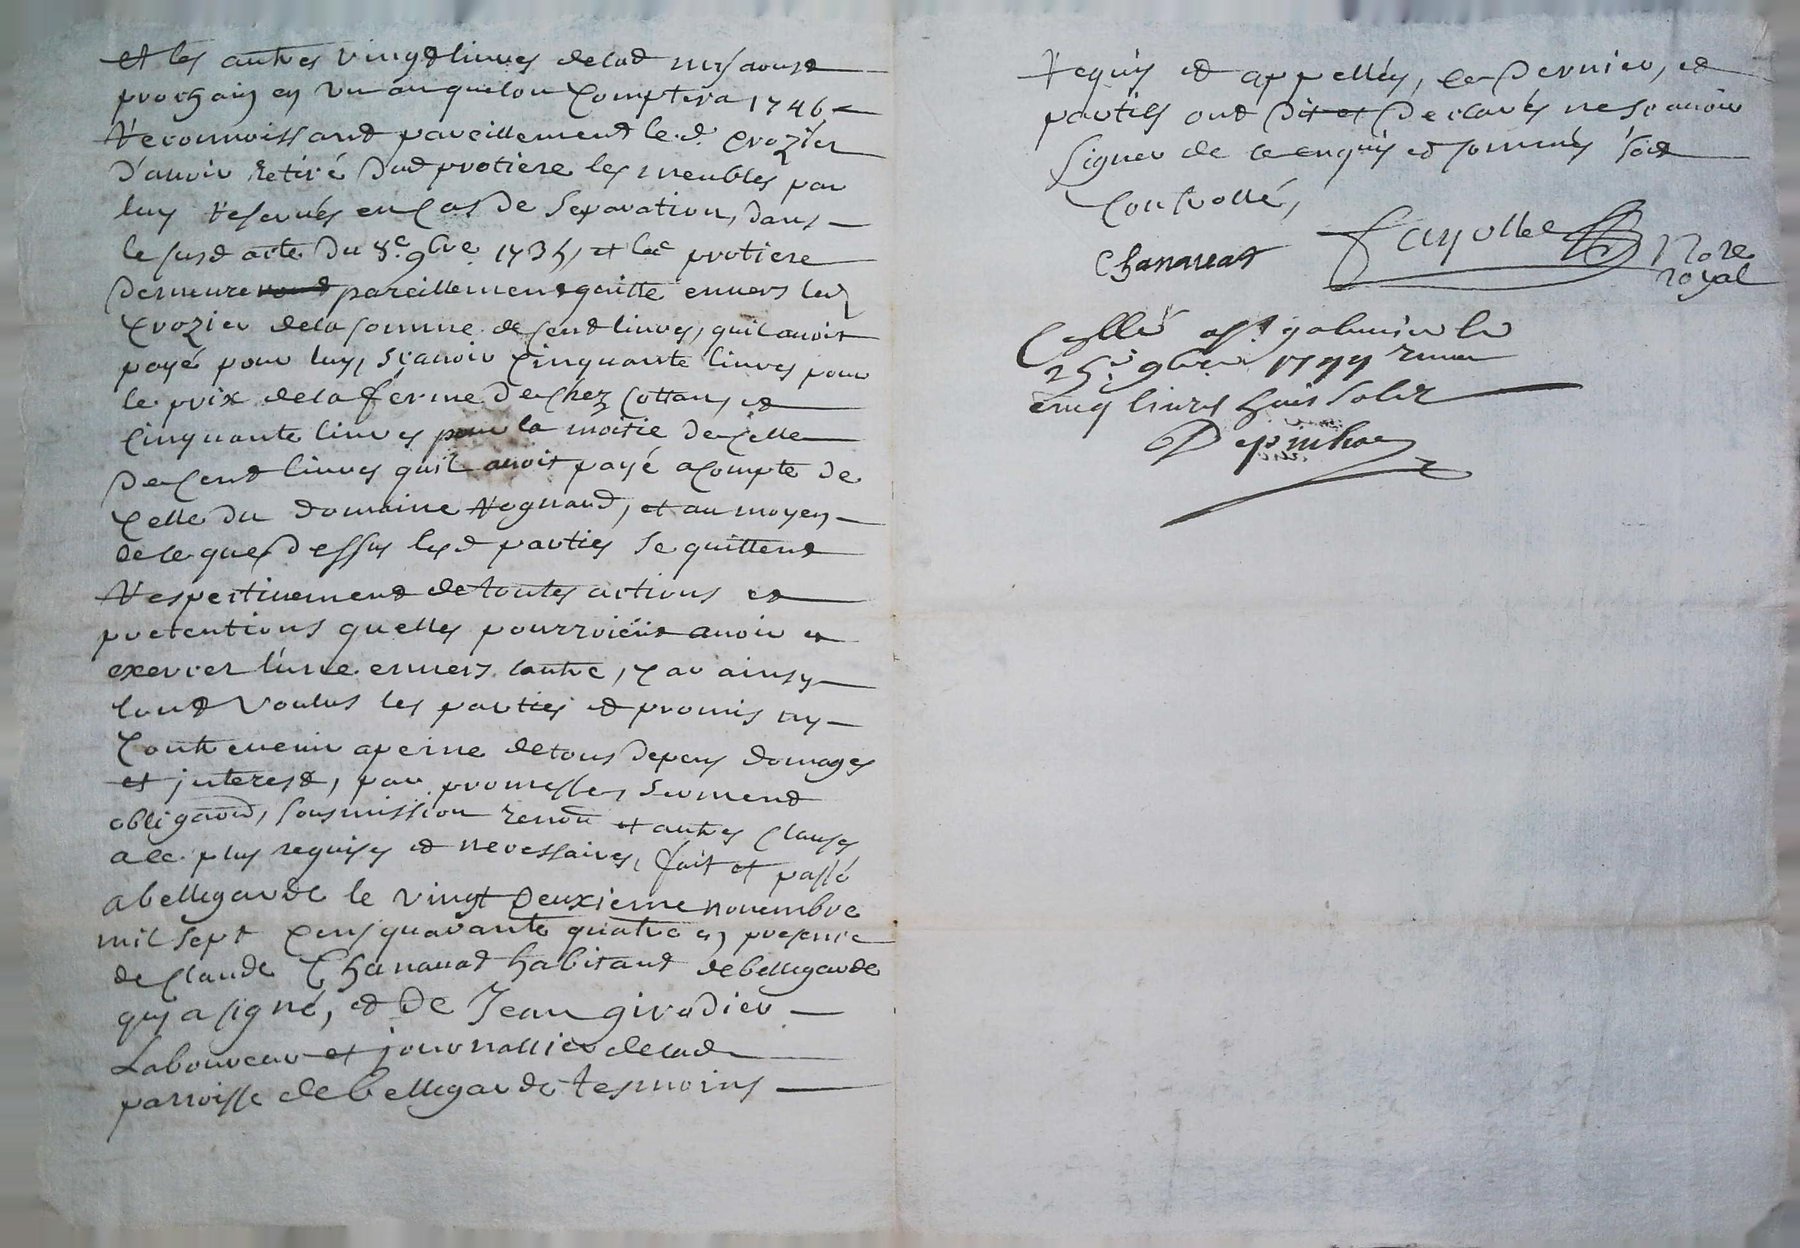 et les autres vingt livres de lad my aoust
prochain en un an quilon Comptera 1746
Reconnoissant pareillement le d. Crozier
D'avoir Retiré Dud protiere les meubles par
luy Reservés en Cas De Separation, dans
le susd acte Du 8.e 9bre 1735, et led protiere
Demeure pareillement quitte envers led
Crozier de la somme de Cent livres, quil avoit
payé pour luy, sçavoir Cinquante livres pour
le prix de la ferme De Chez Cottan, et
Cinquante livres pour la moitié De Celle
De Cent livres quil avoit payé a Compte de
Celle Du Domaine Rognard, et au moyen
de ce que Dessus lesd parties se quittent
Respectivement de toutes actions et
pretentions quelles pourroient avoir et
exercer l'une envers l'autre, Car ainsy
lont Voulus les parties et promis ny
Contrevenir a peine de tous Depens domages
et interest, par promesses, serment
obligaõn, sousmission renõn et autres Clauses
a ce plus requises et necessaires, fait et passé
a bellegarde le vingt Deuxieme novembre
mil sept Cens quarante quatre en presence
de Claude Chanavat habitant de bellegarde
quy a signé, et De Jean girodier
Laboureur et journallier de lad
parroisse de bellegarde tesmoins
Requis et appellés, Ce Dernier, et
parties ont Dit et Declarés ne sçavoir
signer de ce enquis et sommés soit
Controllé,
Chanavat Fayolle Nore
royal
Collé a St galmier le
25e 9bre 1744
cinq livres huit sols